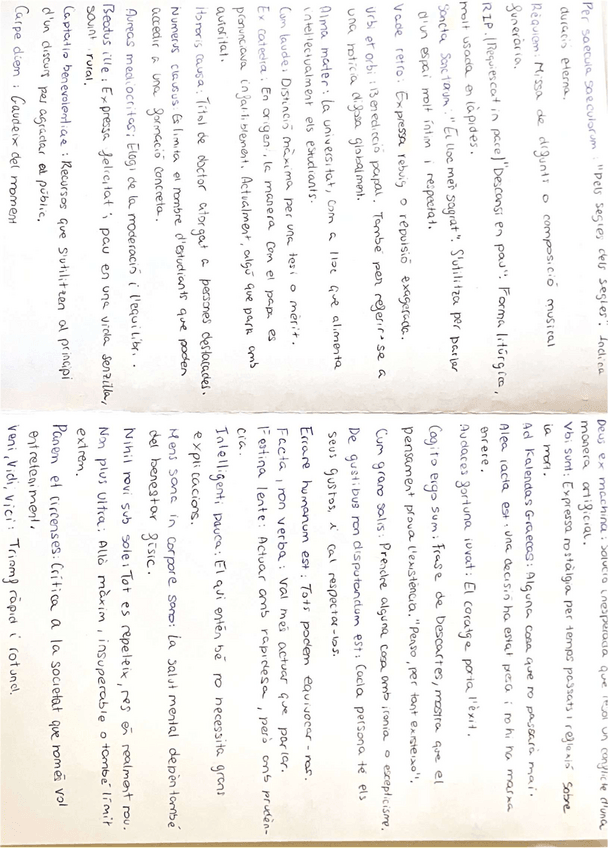 Per saecula saecolorum : "Pels segles dels segles". Indica
duració eterna.
Rèquiem: Missa de difunts o composició musical
funerària.
R.I.P. (Requiescat in pace) "Descansi en pau". Forma litúrgica,
molt usada en làpides.
Sancta Sanctorum: "El lloc més sagrat". S'utilitza per parlar
d'un espai molt íntim i respectat.
Vade retro: Expressa rebuig o repulsió exagerada.
Urbi et orbi: Benedicció papal. També per referir-se a
una notícia difosa globalment.
Alma mater: La universitat, com a lloc que alimenta
intel·lectualment els estudiants.
Cum laude: Distinció màxima per una tesi o mèrit.
Ex catedra: En origen, la manera com el papa es
pronunciava infal·liblement. Actualment, algú que parla amb
autoritat.
Honoris causa: Títol de doctor atorgat a persones destacades.
Numerus clausus: Es limita el nombre d'estudiants que poden
accedir a una formació concreta.
Aureas mediocritas: Elogi de la moderació i l'equilibri.
Beatus ille: Expressa felicitat i pau en una vida senzilla,
sovint rural.
Captatio benevolentiae : Recursos que s'utilitzen al principi
d'un discurs per agradar al públic.
Carpe diem : Gaudeix del moment
Deus ex machina: solució inesperada que resol un conflicte d'una
manera artificial.
Ubi sunt: Expressa nostàlgia per temps passats i reflexió sobre
la mort.
Ad Kalendas Graecas: Alguna cosa que no passarà mai.
Alea iacta est: una decisió ha estat presa i no hi ha marxa
enrere.
Audaces fortuna iuvat: El coratge porta l'èxit.
Cogito ergo sum: Frase de Descartes, mostra que el
pensament prova l'existència. "Penso, per tant existeixo".
Cum grano salis: Prendre alguna cosa amb ironia o escepticisme.
De gustibus non disputandum est: Cada persona té els
seus gustos, i cal respectar-los.
Errare humanum est: Tots podem equivocar-nos.
Facta, non verba: Val més actuar que parlar.
Festina lente: Actuar amb rapidesa, però amb prudèn-
cia.
Intelligenti pauca: El qui entén bé no necessita grans
explicacions.
Mens sana in corpore sano: La salut mental depèn també
del benestar físic.
Nihil novi sub sole: Tot es repeteix, res és realment nou.
Non plus ultra: Allò màxim, insuperable o també límit
extrem.
Panem et circenses: Crítica a la societat que només vol
entreteniment.
Veni, vidi, vici: Triomf ràpid i rotund.